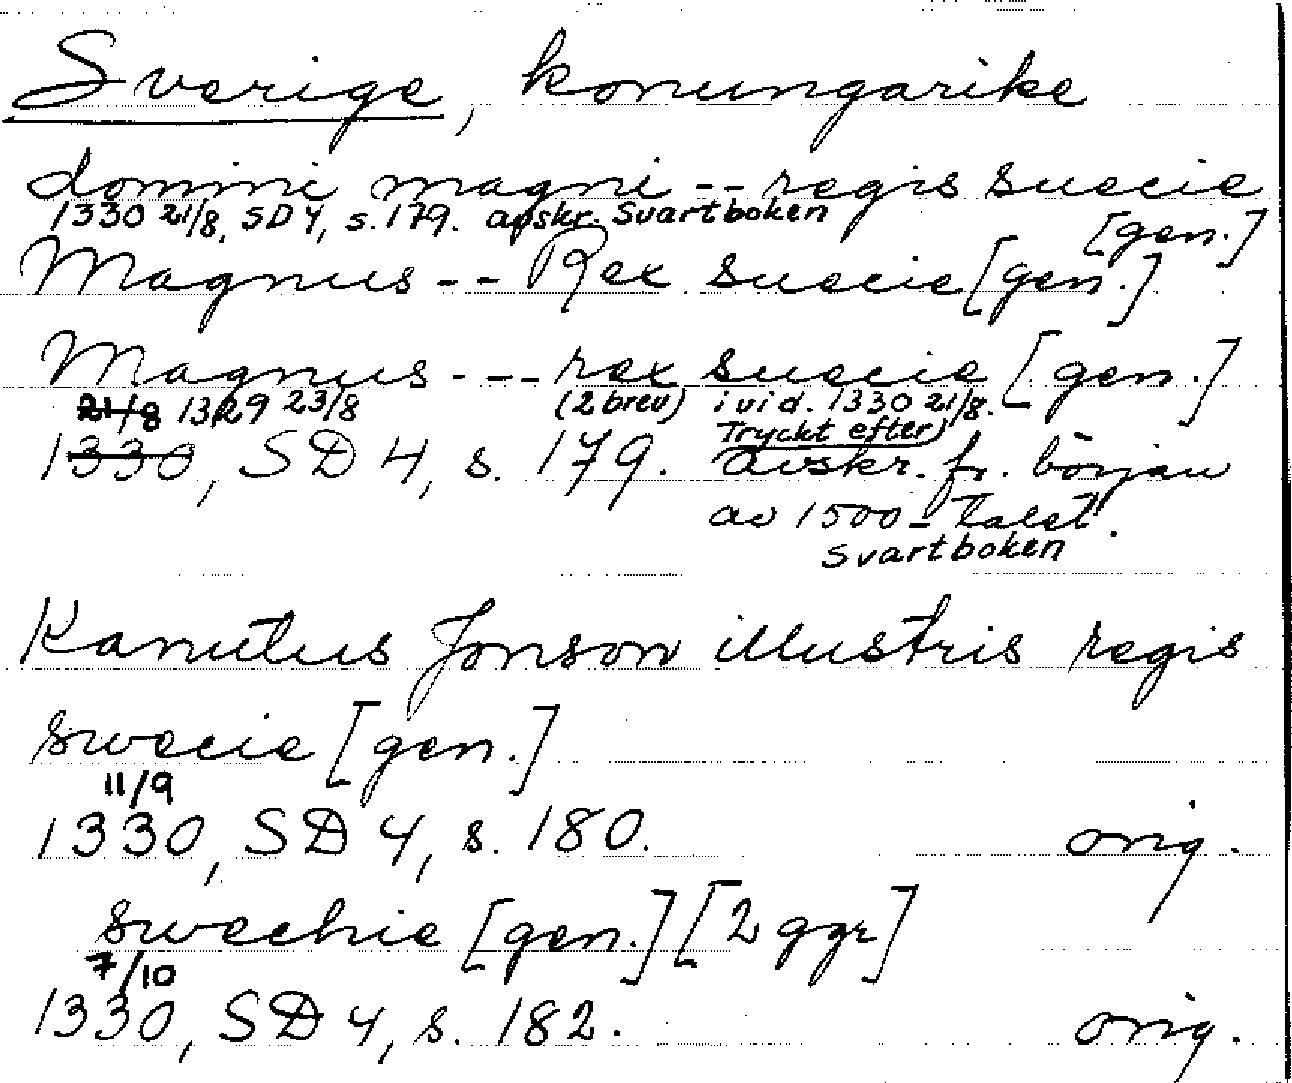 Sverige, konungarike
domini magni -- regis suecie
1330 21/8, SD 4, s. 179. avskr. Svartboken [gen.]
Magnus -- Rex suecie [gen.]
Magnus --- rex suecie [gen.]
21/8 1329 23/8 (2 brev) i vid. 1330 21/8.
Tryckt efter)
1330, SD 4, s. 179. avskr. fr. början
av 1500-talet.
Svartboken
Kanutus Jonson illustris regis
swecie [gen.]
11/9
1330, SD 4, s. 180. orig.
swechie [gen.] [2 ggr]
7/10
1330, SD 4, s. 182. orig.